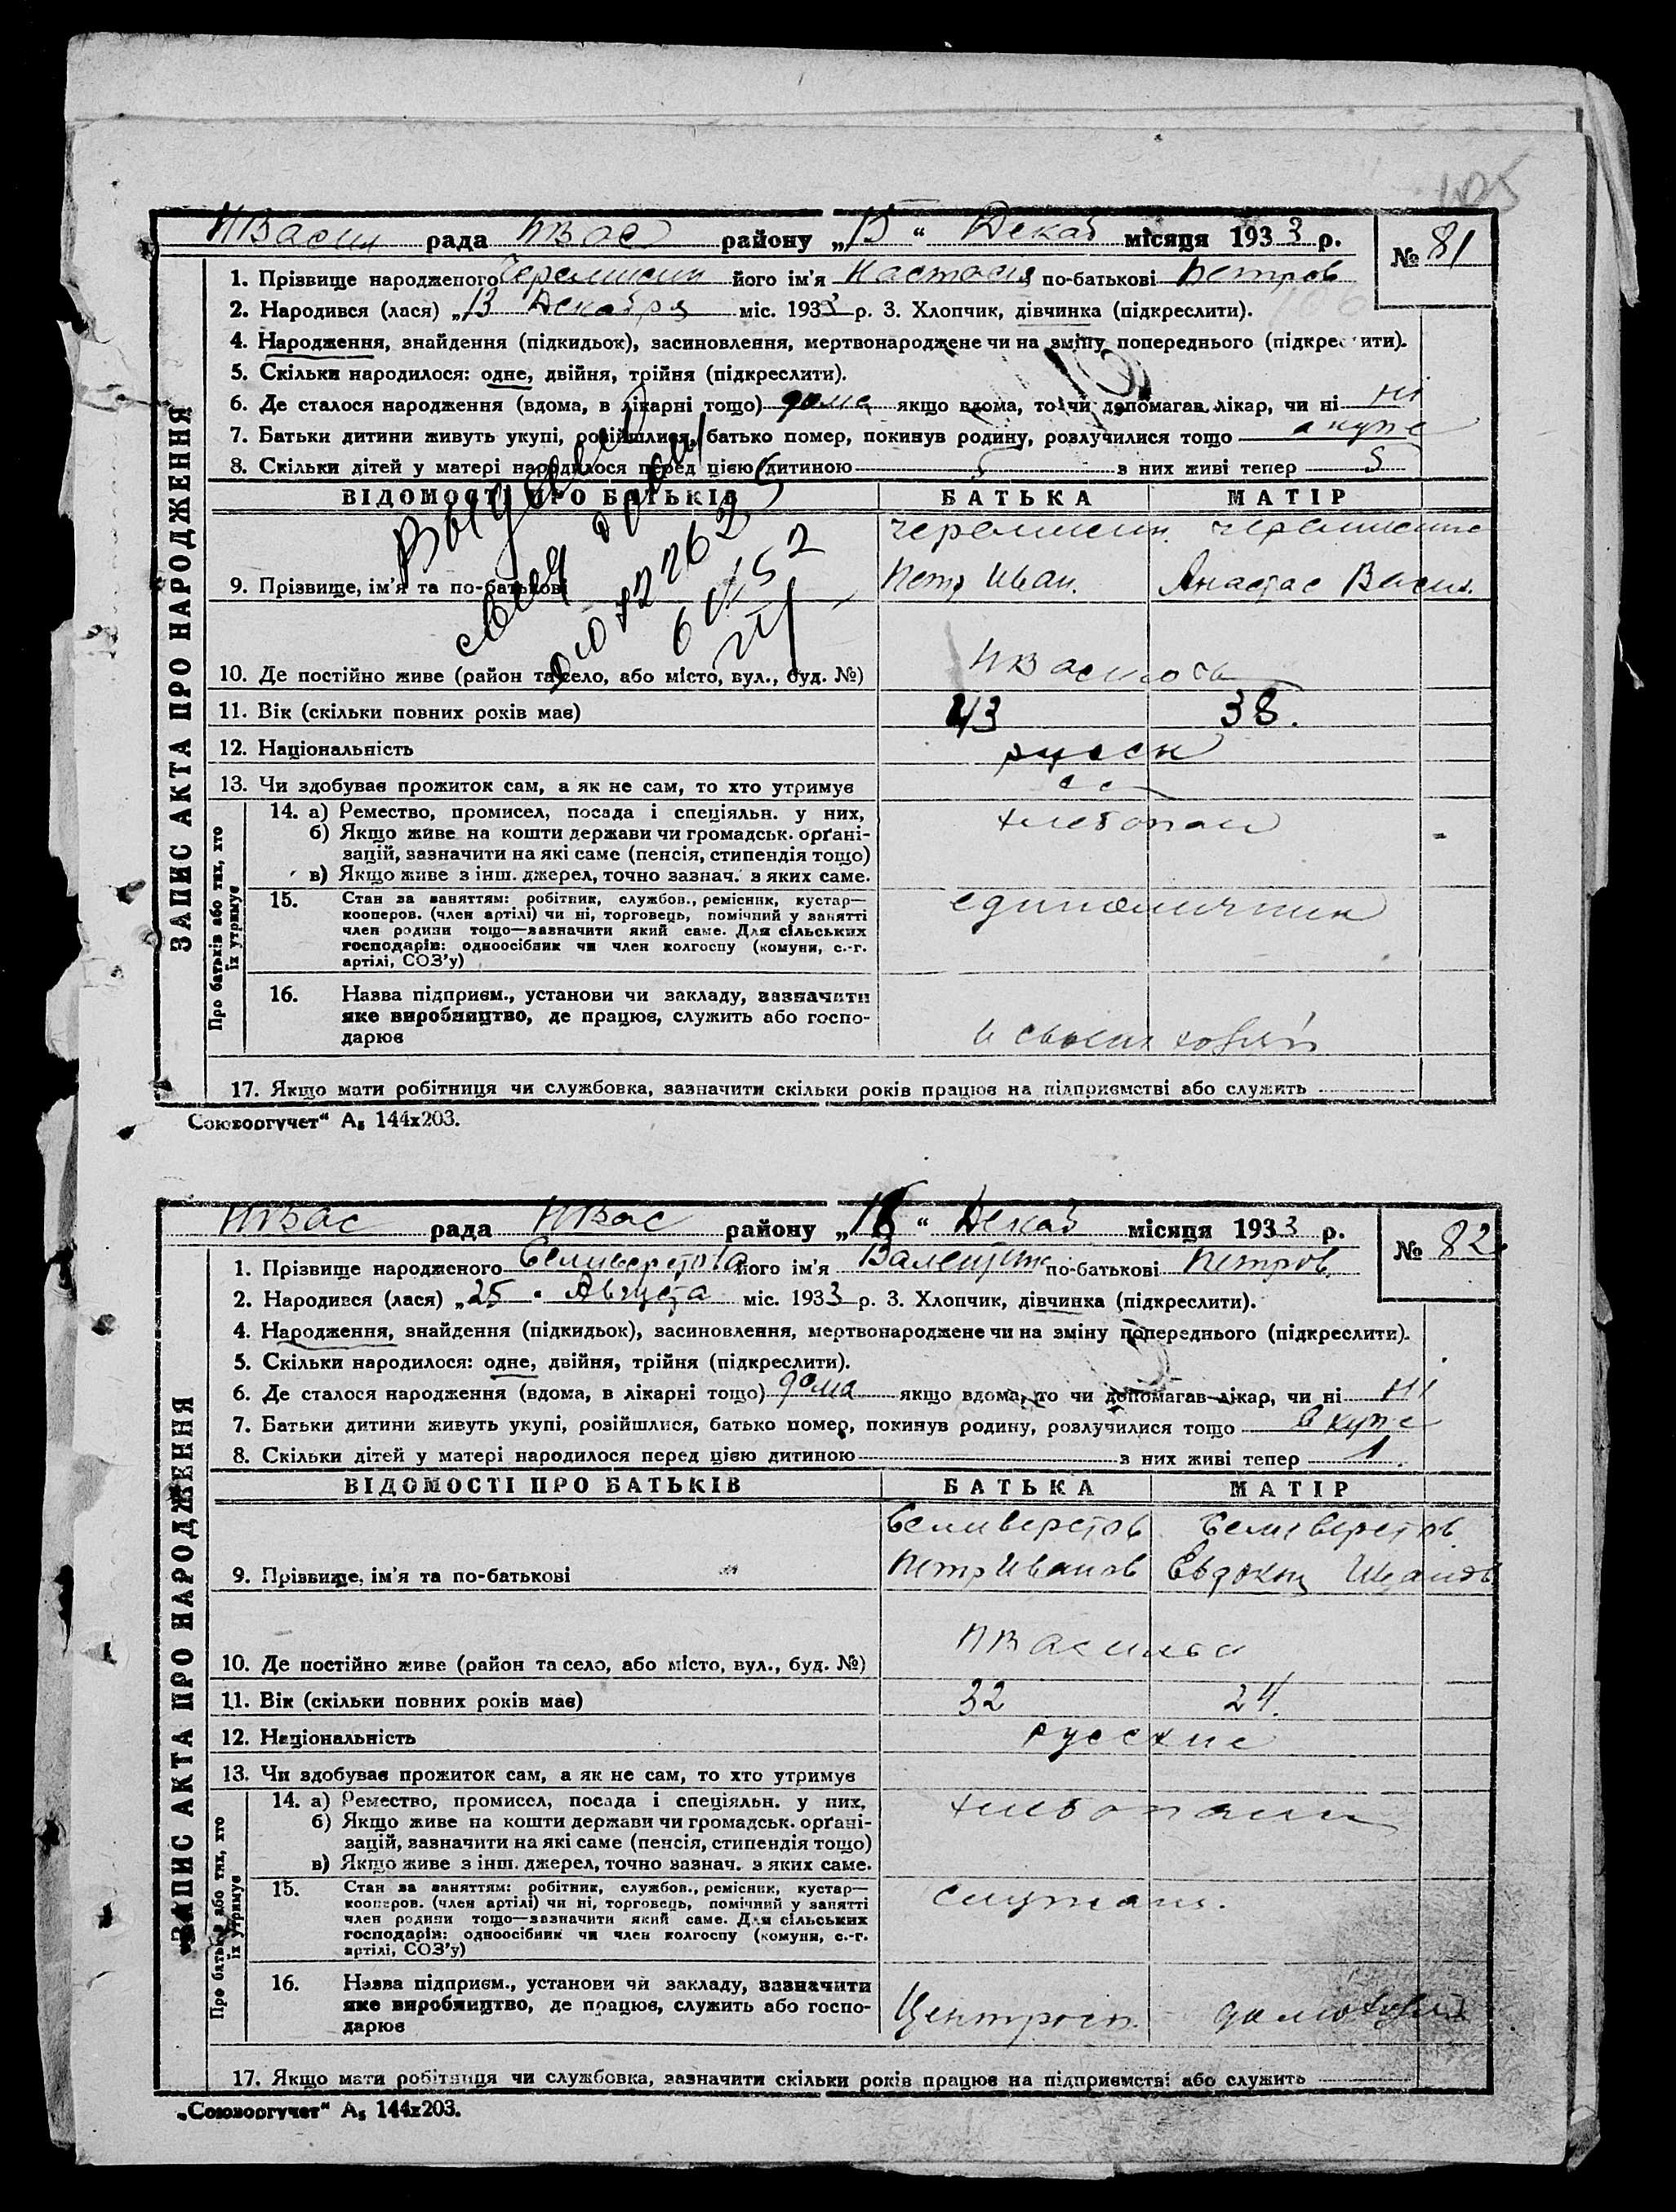 НВасил рада НВас району „15“ Декаб місяця 1933 р.
№ 81
1. Прізвище народженого Черемисин його ім'я Настасия по-батькові Петров
2. Народився (лася) „13 Декабря міс. 1933 р. 3. Хлопчик, дівчинка (підкреслити).
4. Народження, знайдення (підкидьок), засиновлення, мертвонароджене чи на зміну попереднього (підкреслити).
5. Скільки народилося: одне, двійня, трійня (підкреслити).
6. Де сталося народження (вдома, в лікарні тощо) дома якщо вдома, то чи допомагав лікар, чи ні ні
7. Батьки дитини живуть укупі, розійшлися, батько помер, покинув родину, розлучилися тощо вкупе
8. Скільки дітей у матері народилося перед цією дитиною 5 з них живі тепер 5
ВІДОМОСТІ ПРО БАТЬКІВ БАТЬКА МАТІР
Черемисин Черемисине
9. Прізвище, ім'я та по-батькові Петр Иван. Анастас Васил.
10. Де постійно живе (район та село, або місто, вул., буд. №)
11. Вік (скільки повних років має) 43 38.
12. Національність русск
13. Чи здобуває прожиток сам, а як не сам, то хто утримує
14. а) Ремество, промисел, посада і спеціяльн. у них, хлебопаш
б) Якщо живе на кошти держави чи громадськ. орґані-
зацій, зазначити на які саме (пенсія, стипендія тощо)
в) Якщо живе з інш. джерел, точно зазнач. з яких саме.
15. Стан за заняттям: робітник, службов., ремісник, кустар— единоличник
кооперов. (член артілі) чи ні, торговець, помічний у занятті
член родини тощо—зазначити який саме. Для сільських
господарів: одноосібник чи член колгоспу (комуни, с.-г.
артілі, СОЗ'у)
16. Назва підприєм., установи чи закладу, зазначити
яке виробництво, де працює, служить або госпо-
дарює в своем хозяй
17. Якщо мати робітниця чи службовка, зазначити скільки років працює на підприємстві або служить
ЗАПИС АКТА ПРО НАРОДЖЕННЯ
Про батьків або тих, хто
їх утримує
Союзоргучет“ А₅ 144х203.
НВас рада НВас району „18“ Декаб місяця 1933 р.
№ 82
1. Прізвище народженого Селиверстова його ім'я Валентин по-батькові Петров.
2. Народився (лася) „25 Августа міс. 1933 р. 3. Хлопчик, дівчинка (підкреслити).
4. Народження, знайдення (підкидьок), засиновлення, мертвонароджене чи на зміну попереднього (підкреслити).
5. Скільки народилося: одне, двійня, трійня (підкреслити).
6. Де сталося народження (вдома, в лікарні тощо) дома якщо вдома, то чи допомагав лікар, чи ні ні
7. Батьки дитини живуть укупі, розійшлися, батько помер, покинув родину, розлучилися тощо вкупе
8. Скільки дітей у матері народилося перед цією дитиною з них живі тепер 1
ВІДОМОСТІ ПРО БАТЬКІВ БАТЬКА МАТІР
Селиверстов Селиверстов
9. Прізвище, ім'я та по-батькові Петр Иванов Евдоки Иванов
10. Де постійно живе (район та село, або місто, вул., буд. №) НВасильев
11. Вік (скільки повних років має) 32 24.
12. Національність русские
13. Чи здобуває прожиток сам, а як не сам, то хто утримує
14. а) Ремество, промисел, посада і спеціяльн. у них, хлебопаш
б) Якщо живе на кошти держави чи громадськ. орґані-
зацій, зазначити на які саме (пенсія, стипендія тощо)
в) Якщо живе з інш. джерел, точно зазнач. з яких саме.
15. Стан за заняттям: робітник, службов., ремісник, кустар— служащ.
кооперов. (член артілі) чи ні, торговець, помічний у занятті
член родини тощо—зазначити який саме. Для сільських
господарів: одноосібник чи член колгоспу (комуни, с.-г.
артілі, СОЗ'у)
16. Назва підприєм., установи чи закладу, зазначити
яке виробництво, де працює, служить або госпо-
дарює домохозяй
17. Якщо мати робітниця чи службовка, зазначити скільки років працює на підприємстві або служить
ЗАПИС АКТА ПРО НАРОДЖЕННЯ
Про батьків або тих, хто
їх утримує
„Союзоргучет“ А₅ 144х203.